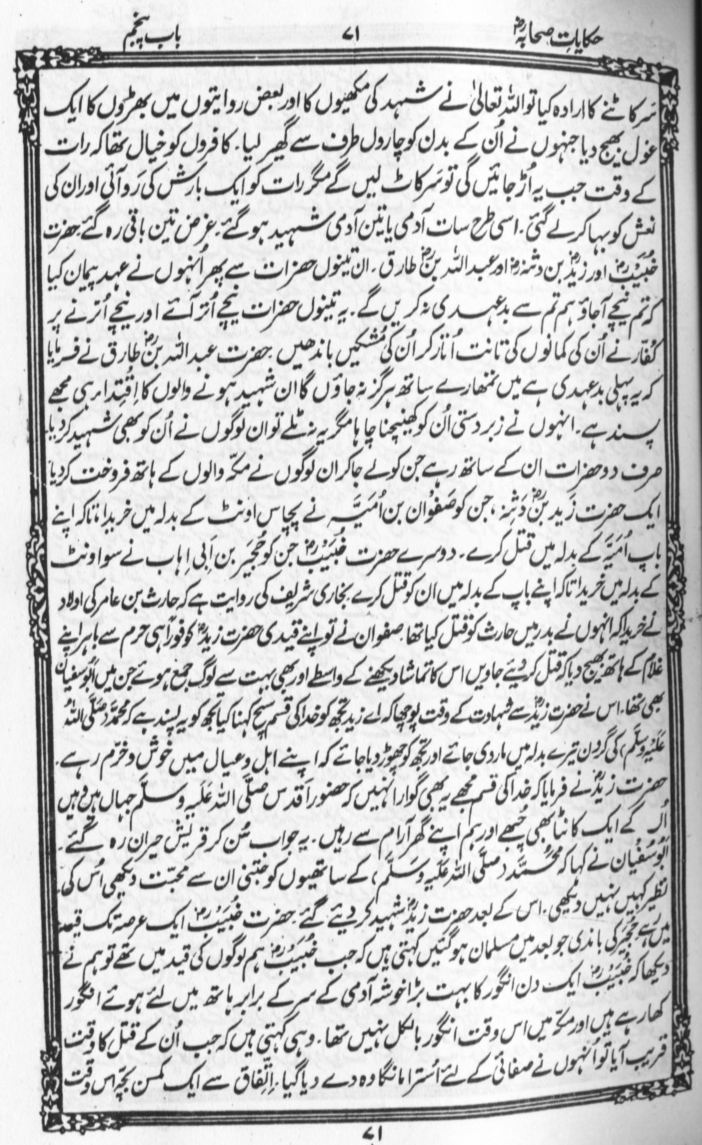 حکایاتِ صحابہؓ ۷۱ باب پنجم
سر کاٹنے کا ارادہ کیا تو اللہ تعالیٰ نے شہد کی مکھیوں کا اور بعض روایتوں میں بھڑوں کا ایک
غول بھیج دیا جنہوں نے اُن کے بدن کو چاروں طرف سے گھیر لیا۔ کافروں کو خیال تھا کہ رات
کے وقت جب یہ اُڑ جائیں گی تو سر کاٹ لیں گے مگر رات کو ایک بارش کی رَو آئی اور ان کی
نعش کو بہا کر لے گئی۔ اسی طرح سات آدمی یا تین آدمی شہید ہو گئے۔ غرض تین باقی رہ گئے حضرت
خُبَیبؓ اور زیدؓ بن دثنہ اور عبد اللہ بنؓ طارق۔ ان تینوں حضرات سے پھر اُنہوں نے عہد پیمان کیا
کہ تم نیچے آجاؤ ہم تم سے بدعہدی نہ کریں گے۔ یہ تینوں حضرات نیچے اُتر آئے اور نیچے اُترنے پر
کفار نے اُن کی کمانوں کی تانت اُتار کر ان کی مُشکیں باندھیں۔ حضرت عبد اللہ بنؓ طارق نے فرمایا
کہ یہ پہلی بدعہدی ہے میں تمھارے ساتھ ہرگز نہ جاؤں گا ان شہید ہونے والوں کا اِقتدا ہی مجھے
پسند ہے۔ انہوں نے زبردستی اُن کو کھینچنا چاہا مگر یہ نہ ٹلے تو ان لوگوں نے اُن کو بھی شہید کر دیا
صرف دو حضرات ان کے ساتھ رہے جن کو لے جا کر ان لوگوں نے مکہ والوں کے ہاتھ فروخت کر دیا
ایک حضرت زید بنؓ دَثِنہ، جن کو صَفْوان بن اُمَیَّہ نے پچاس اونٹ کے بدلہ میں خریدا تاکہ اپنے
باپ اُمَیَّہ کے بدلہ میں قتل کرے۔ دوسرے حضرت خُبَیبؓ جن کو حُجَیر بن اَبی اِہاب نے سو اونٹ
کے بدلہ میں خریدا تاکہ اپنے باپ کے بدلہ میں ان کو قتل کرے۔ بخاری شریف کی روایت ہے کہ حارث بن عامر کی اولاد
نے خریدا کہ انہوں نے بدر میں حارث کو قتل کیا تھا۔ صفوان نے تو اپنے قیدی حضرت زیدؓ کو فوراً ہی حرم سے باہر اپنے
غلام کے ہاتھ بھیج دیا کہ قتل کر دیئے جاویں اس کا تماشا دیکھنے کے واسطے اور بھی بہت سے لوگ جمع ہوئے جن میں ابوسفیان
بھی تھا۔ اس نے حضرت زیدؓ سے شہادت کے وقت پوچھا کہ اے زید تجھ کو خدا کی قسم سچ کہنا کیا تجھ کو یہ پسند ہے کہ محمدؐ (صلّی اللہ
علَیہ وسلَّم) کی گردن تیرے بدلہ میں مار دی جائے اور تجھ کو چھوڑ دیا جائے کہ اپنے اہل و عیال میں خوش و خرّم رہے۔
حضرت زیدؓ نے فرمایا کہ خدا کی قسم مجھے یہ بھی گوارا نہیں کہ حضورِ اَقدس صلَّی اللہُ عَلَیہِ وَسلَّم جہاں ہیں وہیں
اُن کے ایک کانٹا بھی چُبھے اور ہم اپنے گھر آرام سے رہیں۔ یہ جواب سُن کر قریش حیران رہ گئے۔
ابوسُفیان نے کہا کہ محمّد (صلَّی اللہُ عَلَیہِ وَسَلَّم) کے ساتھیوں کو جتنی ان سے محبّت دیکھی اُس کی
نظیر کہیں نہیں دیکھی۔ اس کے بعد حضرت زیدؓ شہید کر دیئے گئے۔ حضرت خُبَیبؓ ایک عرصہ تک قید
میں رہے حُجَیر کی باندی جو بعد میں مسلمان ہو گئیں کہتی ہیں کہ جب خُبَیبؓ ہم لوگوں کی قید میں تھے تو ہم نے
دیکھا کہ خُبَیبؓ ایک دن انگور کا بہت بڑا خوشہ آدمی کے سر کے برابر ہاتھ میں لئے ہوئے انگور
کھا رہے ہیں اور مکہ میں اس وقت انگور بالکل نہیں تھا۔ وہی کہتی ہیں کہ جب اُن کے قتل کا وقت
قریب آیا تو اُنہوں نے صفائی کے لئے اُسترا مانگا وہ دے دیا گیا۔ اِتفاق سے ایک کمسن بچہ اس وقت
۷۱